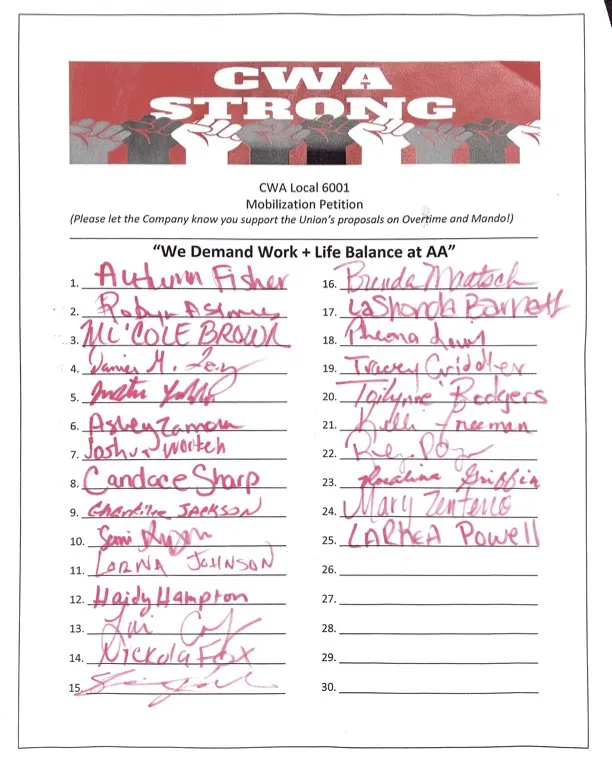 CWA
STRONG
CWA Local 6001
Mobilization Petition
(Please let the Company know you support the Union's proposals on Overtime and Mando!)
"We Demand Work + Life Balance at AA"
1. Autumn Fisher
2. Robyn
3. NIC'COLE BROWN
4. James M.
5.
6. Ashley Zamora
7. Joshua Wortch
8. Candace Sharp
9. JACKSON
10.
11. LORNA JOHNSON
12. Haidy Hampton
13.
14. Nickola Fox
15.
16. Brenda Maatsch
17. LaShonda Barnett
18. Pheona
19. Tracey Criddler
20. Rodgers
21. Kelli Freeman
22.
23. Rosalina Griffin
24. Mary Zenterio
25. LARHEA Powell
26.
27.
28.
29.
30.